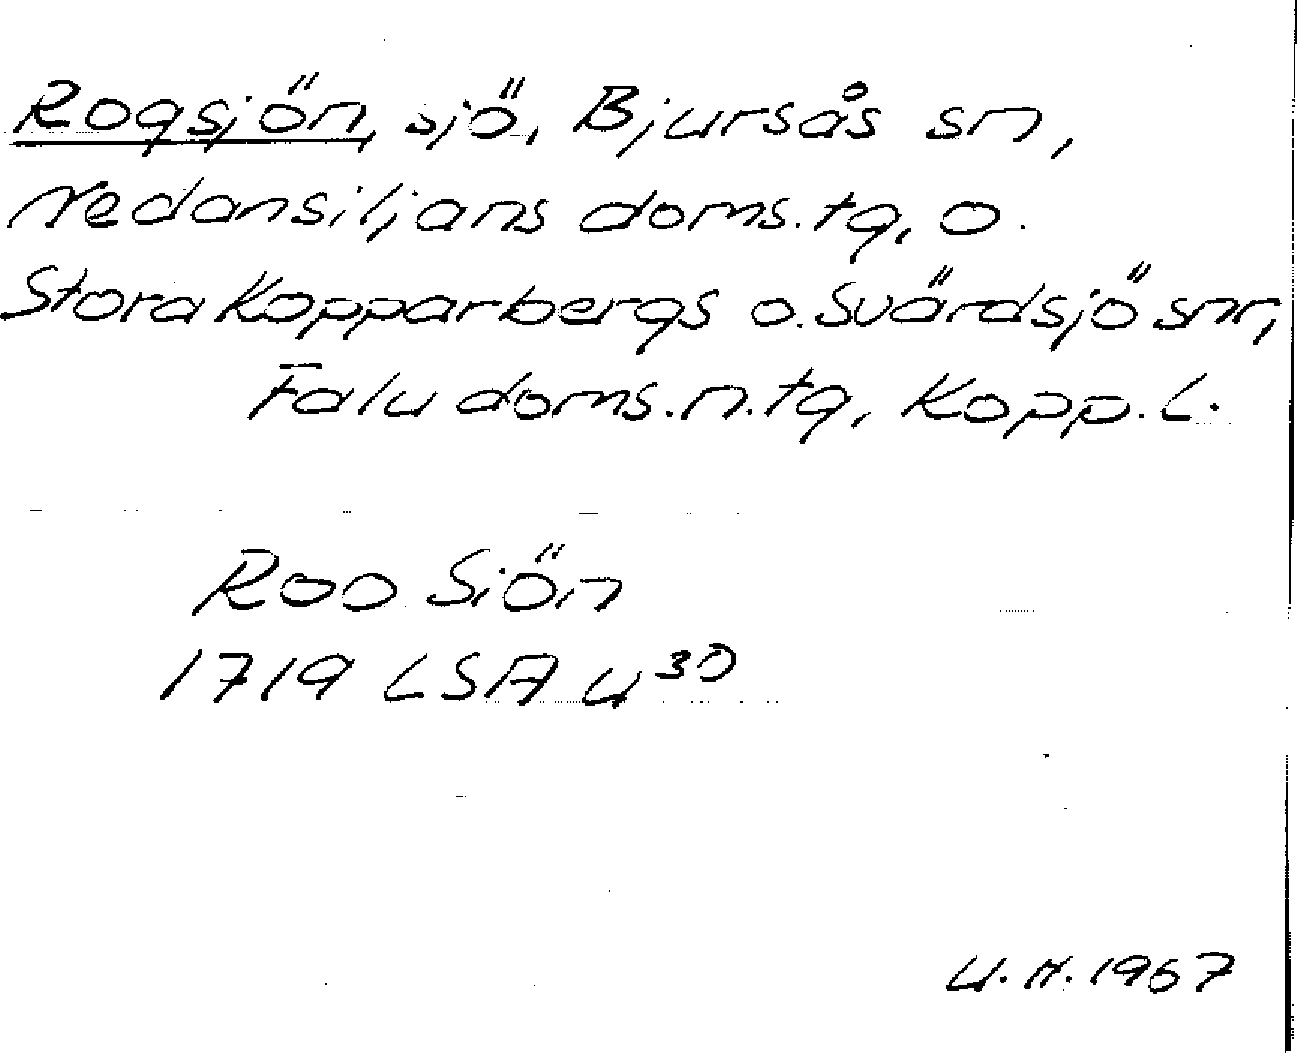 Rogsjön, sjö, Bjursås sn,
Nedansiljans doms.tg, o.
Stora Kopparbergs o. Svärdsjö snr,
Falu doms.n.tg, Kopp. L.
Roo Siön
1719 LSA U³⁰
U.H. 1967